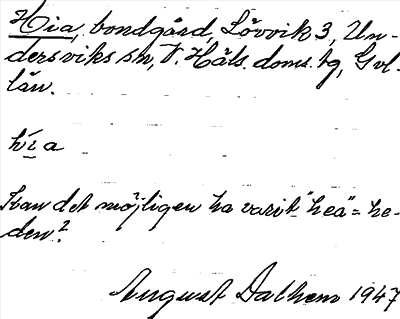 Hia, bondgård, Lövvik 3, Un-
dersviks sn, V. Häls. doms. bg, Gvl.
län.
hía
Kan det möjligen ha varit "hea" = he-
den?
August Dalhem 1947